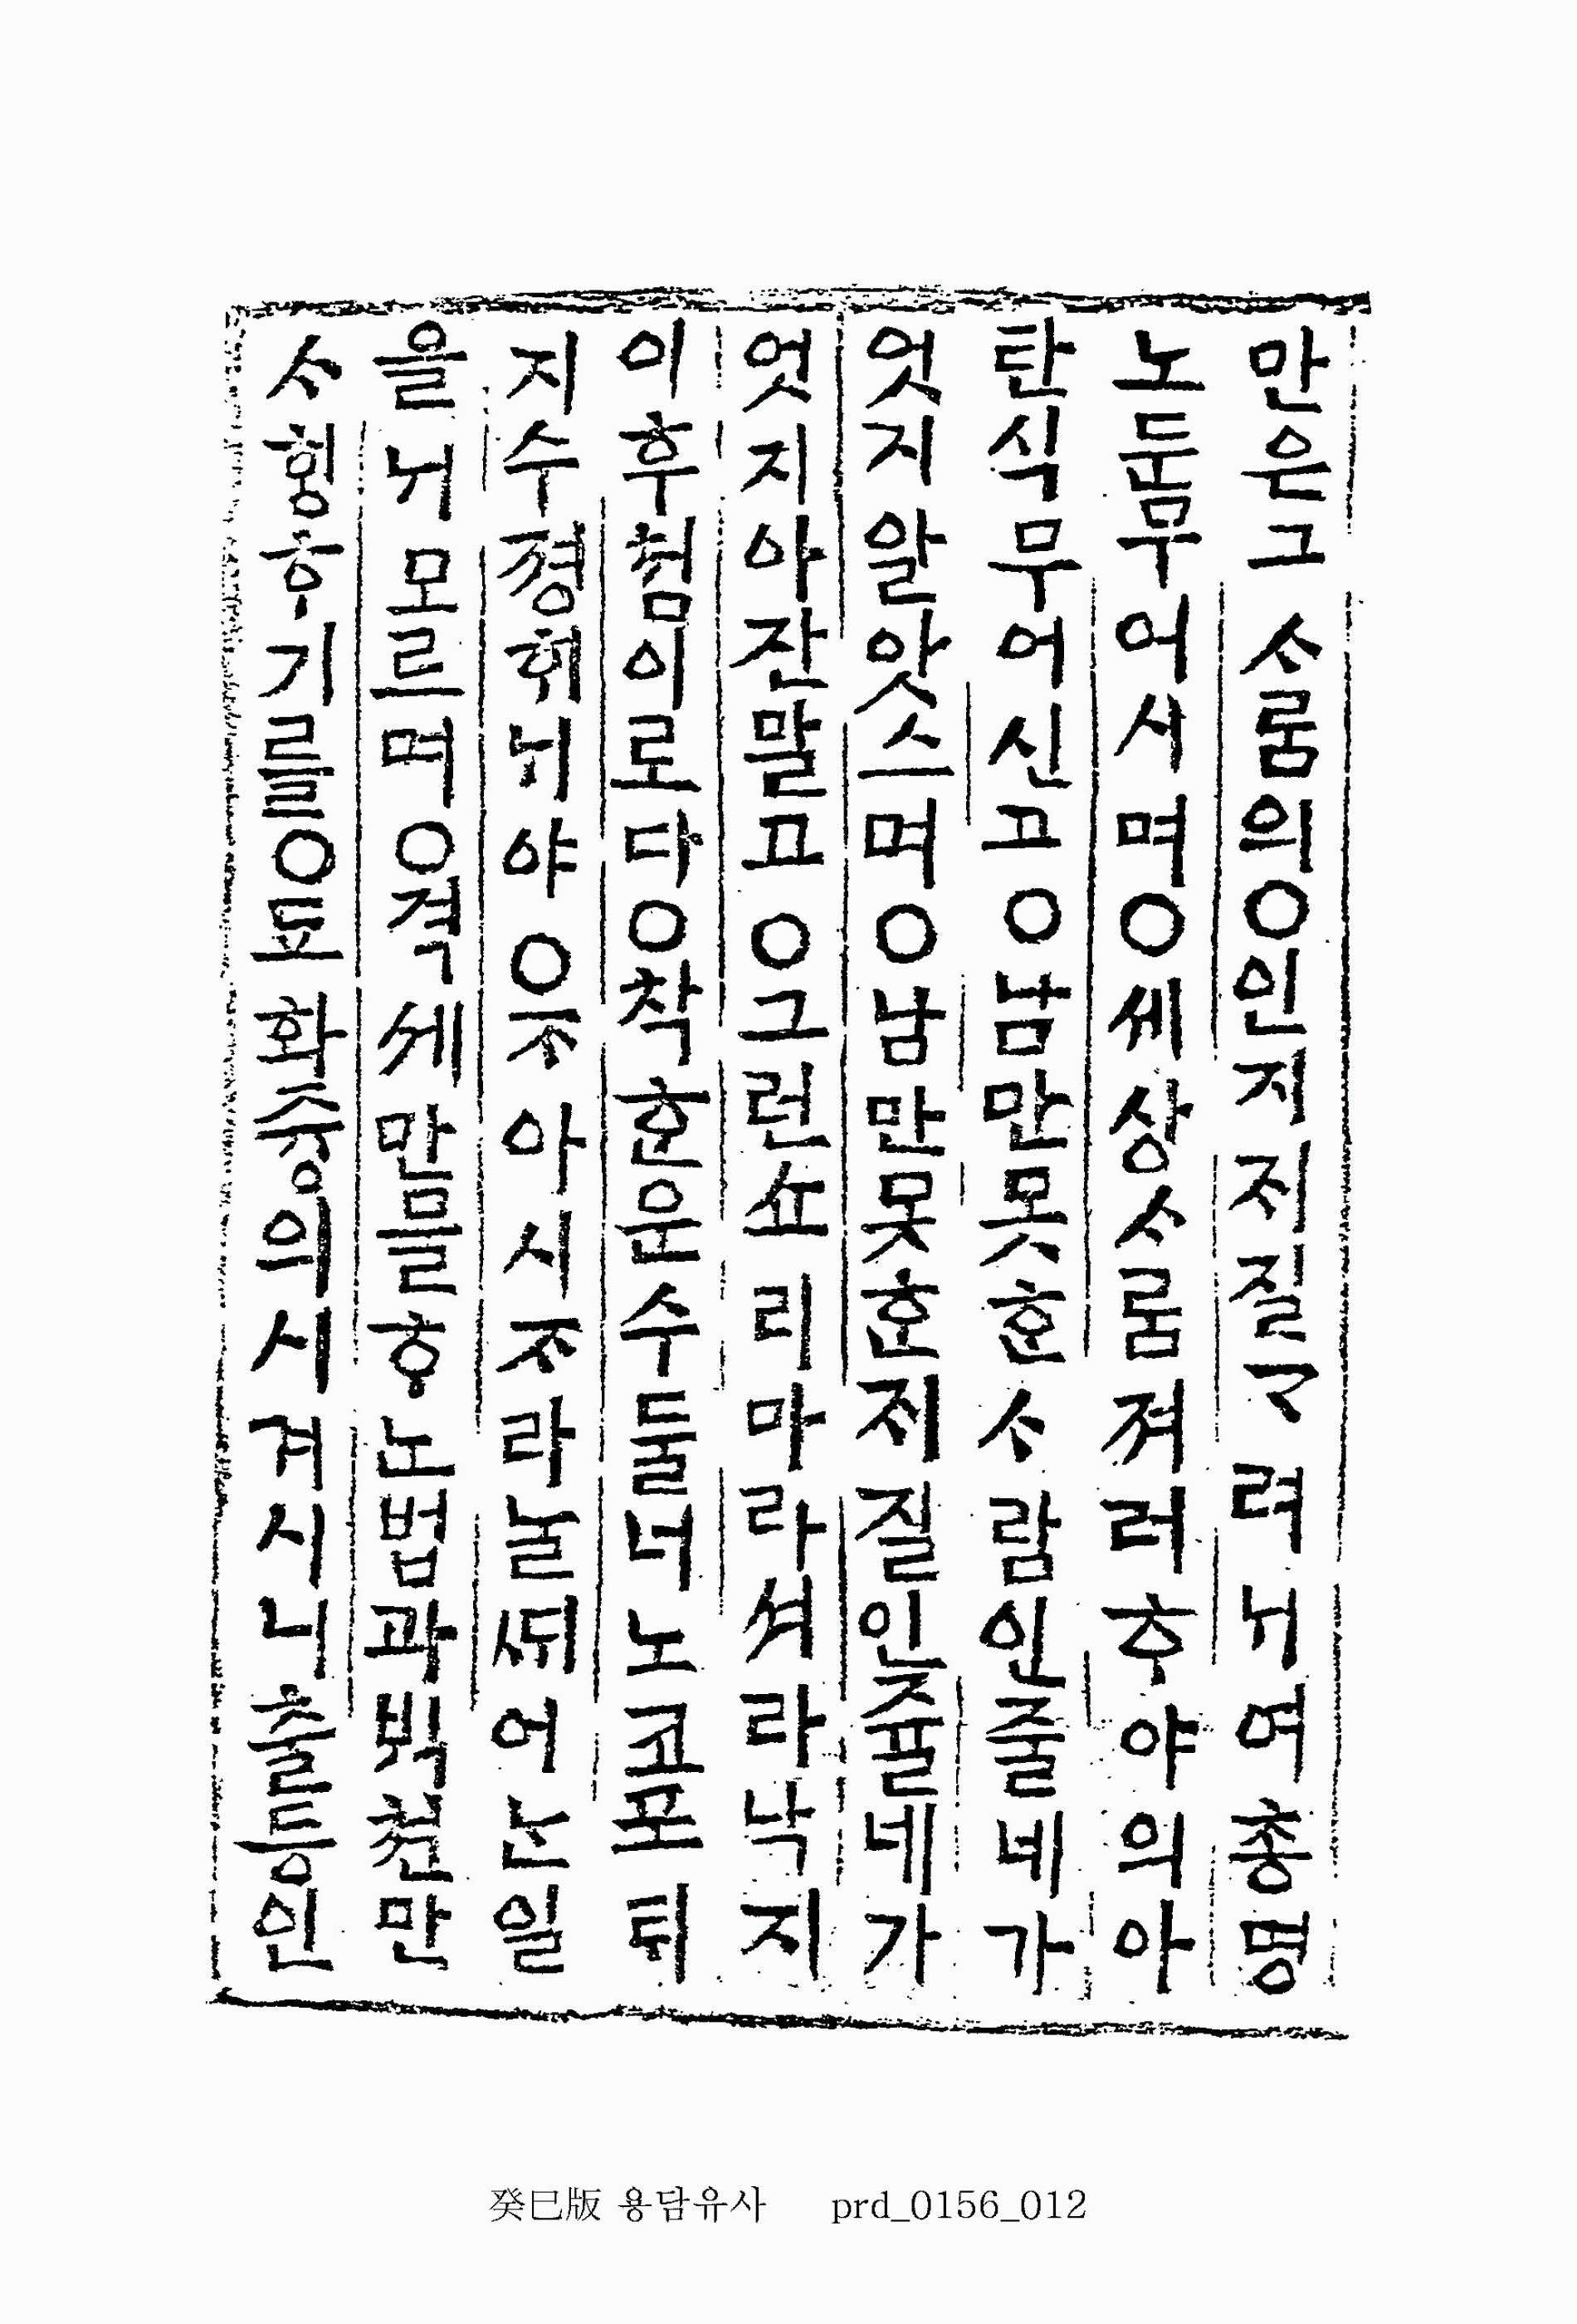 만은그ᄉᆞᄅᆞᆷ의○인지ᄌᆡ질ᄀᆞ려ᄂᆡ여총명
노둔무어시며○세상ᄉᆞᄅᆞᆷ져러ᄒᆞ야의아
탄식무어신고○남만못ᄒᆞᆫᄉᆞ람인줄네가
엇지알앗스며○남만못ᄒᆞᆫᄌᆡ질인쥴네가
엇지아잔말고○그런쇼리마라셔라낙지
이후쳠이로다○착ᄒᆞᆫ운수둘너노코포ᄐᆡ
지수졍ᄒᆡᄂᆡ야○ᄌᆞ아시ᄌᆞ라ᄂᆞᆯᄯᆡ어ᄂᆞᆫ일
을ᄂᆡ모르며○젹셰만믈ᄒᆞᄂᆞᆫ법과ᄇᆡᆨ쳔만
ᄉᆞᄒᆡᆼᄒᆞ기를○됴화즁의시겨시니출등인
癸巳版 용담유사 prd_0156_012